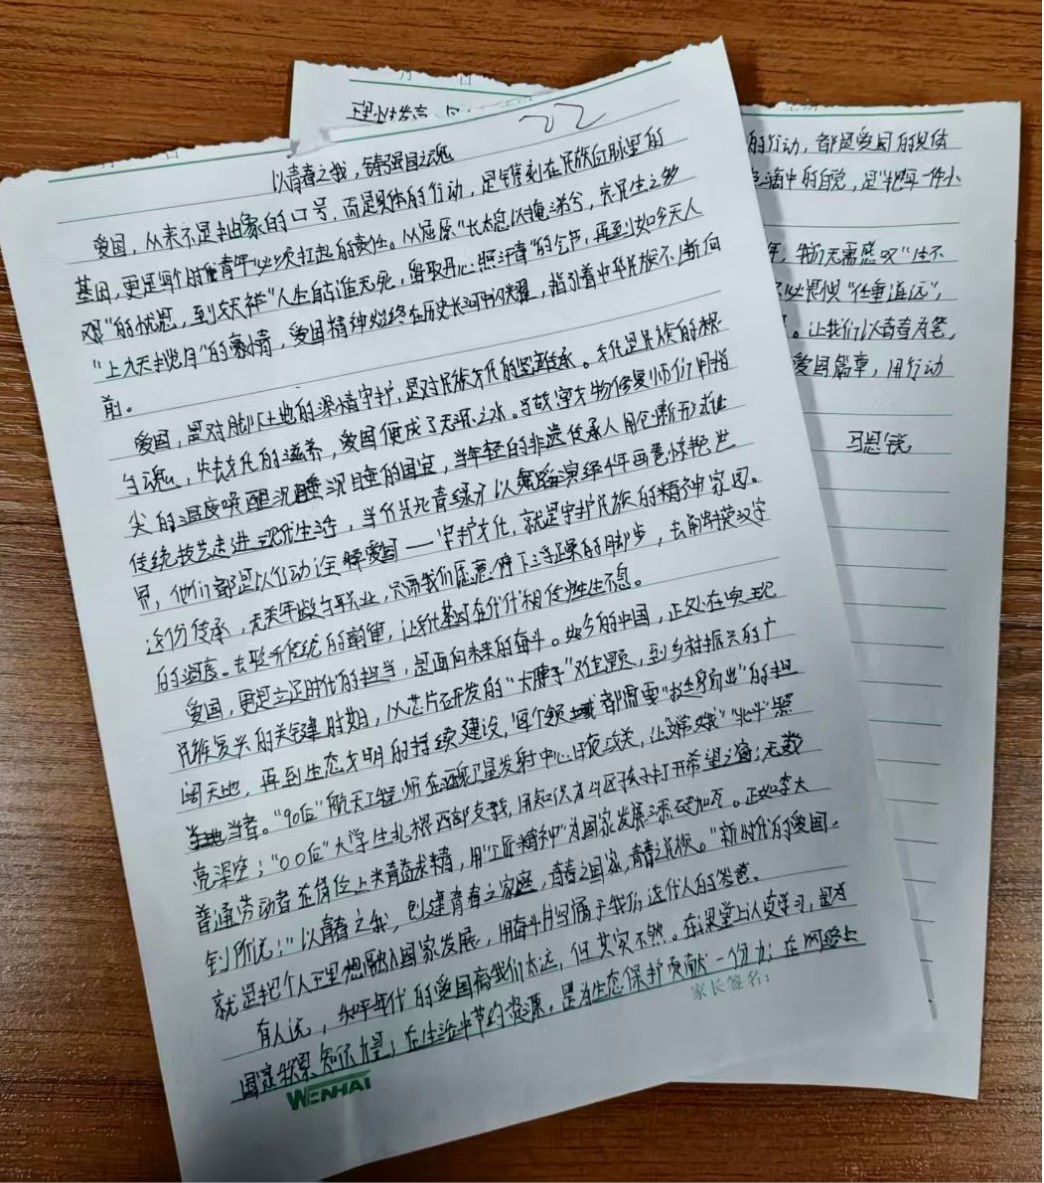 22
以青春之我，铸强国之魂
爱国，从来不是抽象的口号，而是具体的行动，是镌刻在民族血脉里的
基因，更是每个时代青年必须扛起的责任。从屈原"长太息以掩涕兮，哀民生之多
艰"的忧思，到文天祥"人生自古谁无死，留取丹心照汗青"的气节，再到如今天人
"上九天揽月"的豪情，爱国精神始终在历史长河中闪耀，指引着中华民族不断向
前。
爱国，是对脚下土地的深情守护，是对民族文化的坚定传承。文化是民族的根
与魂，失去文化的滋养，爱国便成了无源之水。当故宫文物修复师们用指
尖的温度唤醒沉睡的国宝，当年轻的非遗传承人用创新形式让
传统技艺走进现代生活，当《只此青绿》以舞蹈演绎千年画卷惊艳世
界，他们都是以行动诠释爱国——守护文化，就是守护民族的精神家园。
这份传承，无关年龄与职业，只需我们愿意停下浮躁的脚步，去触摸汉字
的温度。去聆听传统的韵律，让文化基因在代代相传中生生不息。
爱国，更是立足时代的担当，是面向未来的奋斗。如今的中国，正处在实现
民族复兴的关键时期，从芯片研发的"卡脖子"难题，到乡村振兴的广
阔天地，再到生态文明的持续建设，每个领域都需要"挺身而出"的担
当者。"90后"航天工程师在酒泉卫星发射中心日夜攻关，让"嫦娥""北斗"照
亮深空；"00后"大学生扎根西部支教，用知识为山区孩子打开希望之窗；无数
普通劳动者在岗位上精益求精，用"工匠精神"为国家发展添砖加瓦。正如李大
钊所说："以青春之我，创建青春之家庭，青春之国家，青春之民族。"新时代的爱国，
就是把个人理想融入国家发展，用奋斗书写属于我们这代人的答卷。
有人说，和平年代的爱国离我们太远，但其实不然。在课堂上认真学习，是为
国家积累知识力量；在生活中节约资源，是为生态保护贡献一份力；在网络上
家长签名：
WENHAI
理性发言
的行动，都是爱国的具体
中的自觉，是把每一件小
我们无需感叹"生不
必畏惧"任重道远"，
。让我们以青春为笔，
爱国篇章，用行动